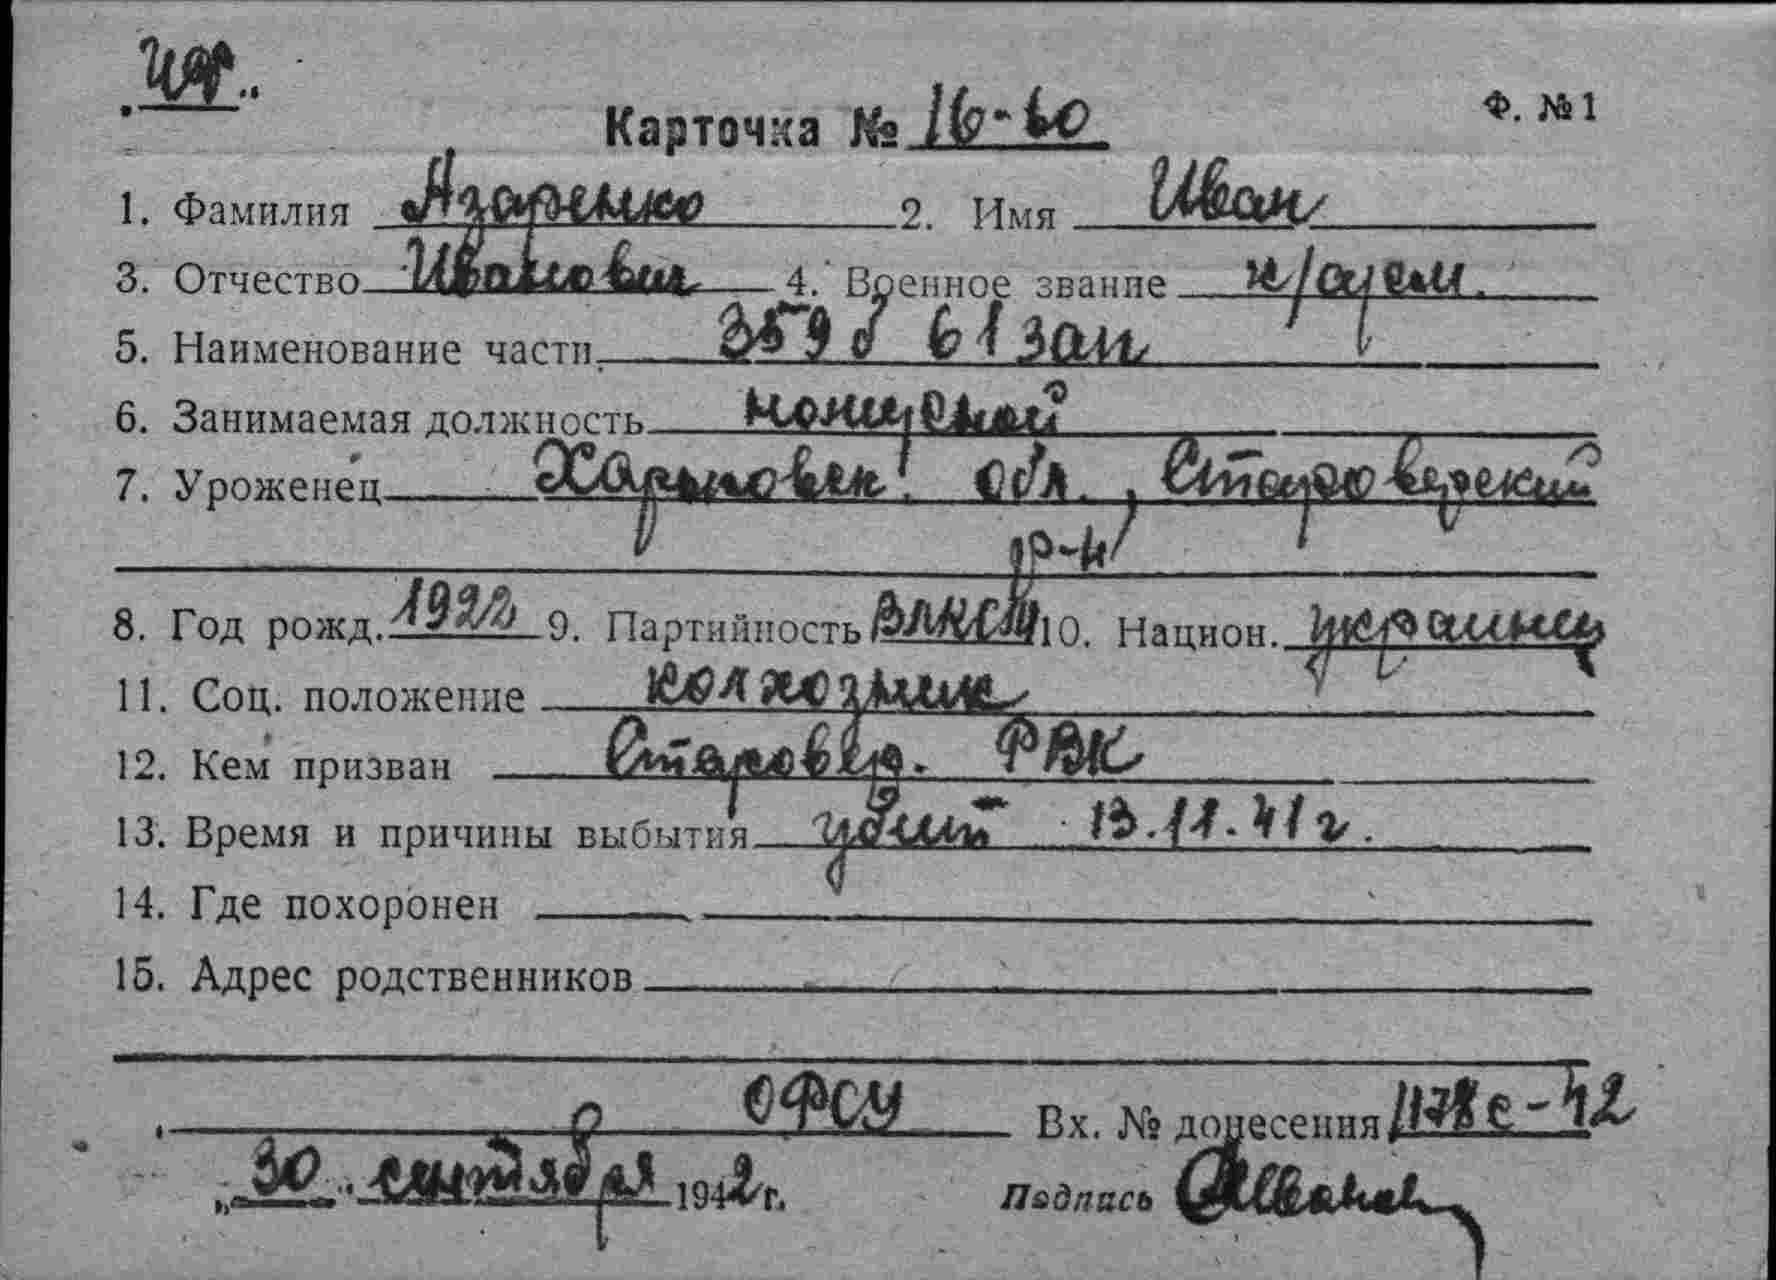 Ф. №1
Карточка № 16-60
1. Фамилия Азаренко 2. Имя Иван
3. Отчество Иванович 4. Военное звание
5. Наименование части 359 б 61 зап
6. Занимаемая должность
7. Уроженец Харьковск. обл., Старовер­ский
р-н
8. Год рожд. 1922 9. Партийность ВЛКСМ 10. Национ. украинец
11. Соц. положение колхозник
12. Кем призван Старовер. РВК
13. Время и причины выбытия убит 13.11.41 г.
14. Где похоронен
15. Адрес родственников
ОФСУ Вх. № донесения 1178с-42
„30" сентября 1942 г. Подпись